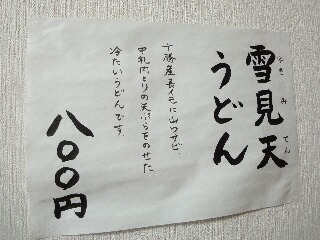 雪見天
ゆきみてん
うどん
十勝産長イモに山ワサビ、
中札内とりの天ぷらをのせた
冷たいうどんです。
八〇〇円